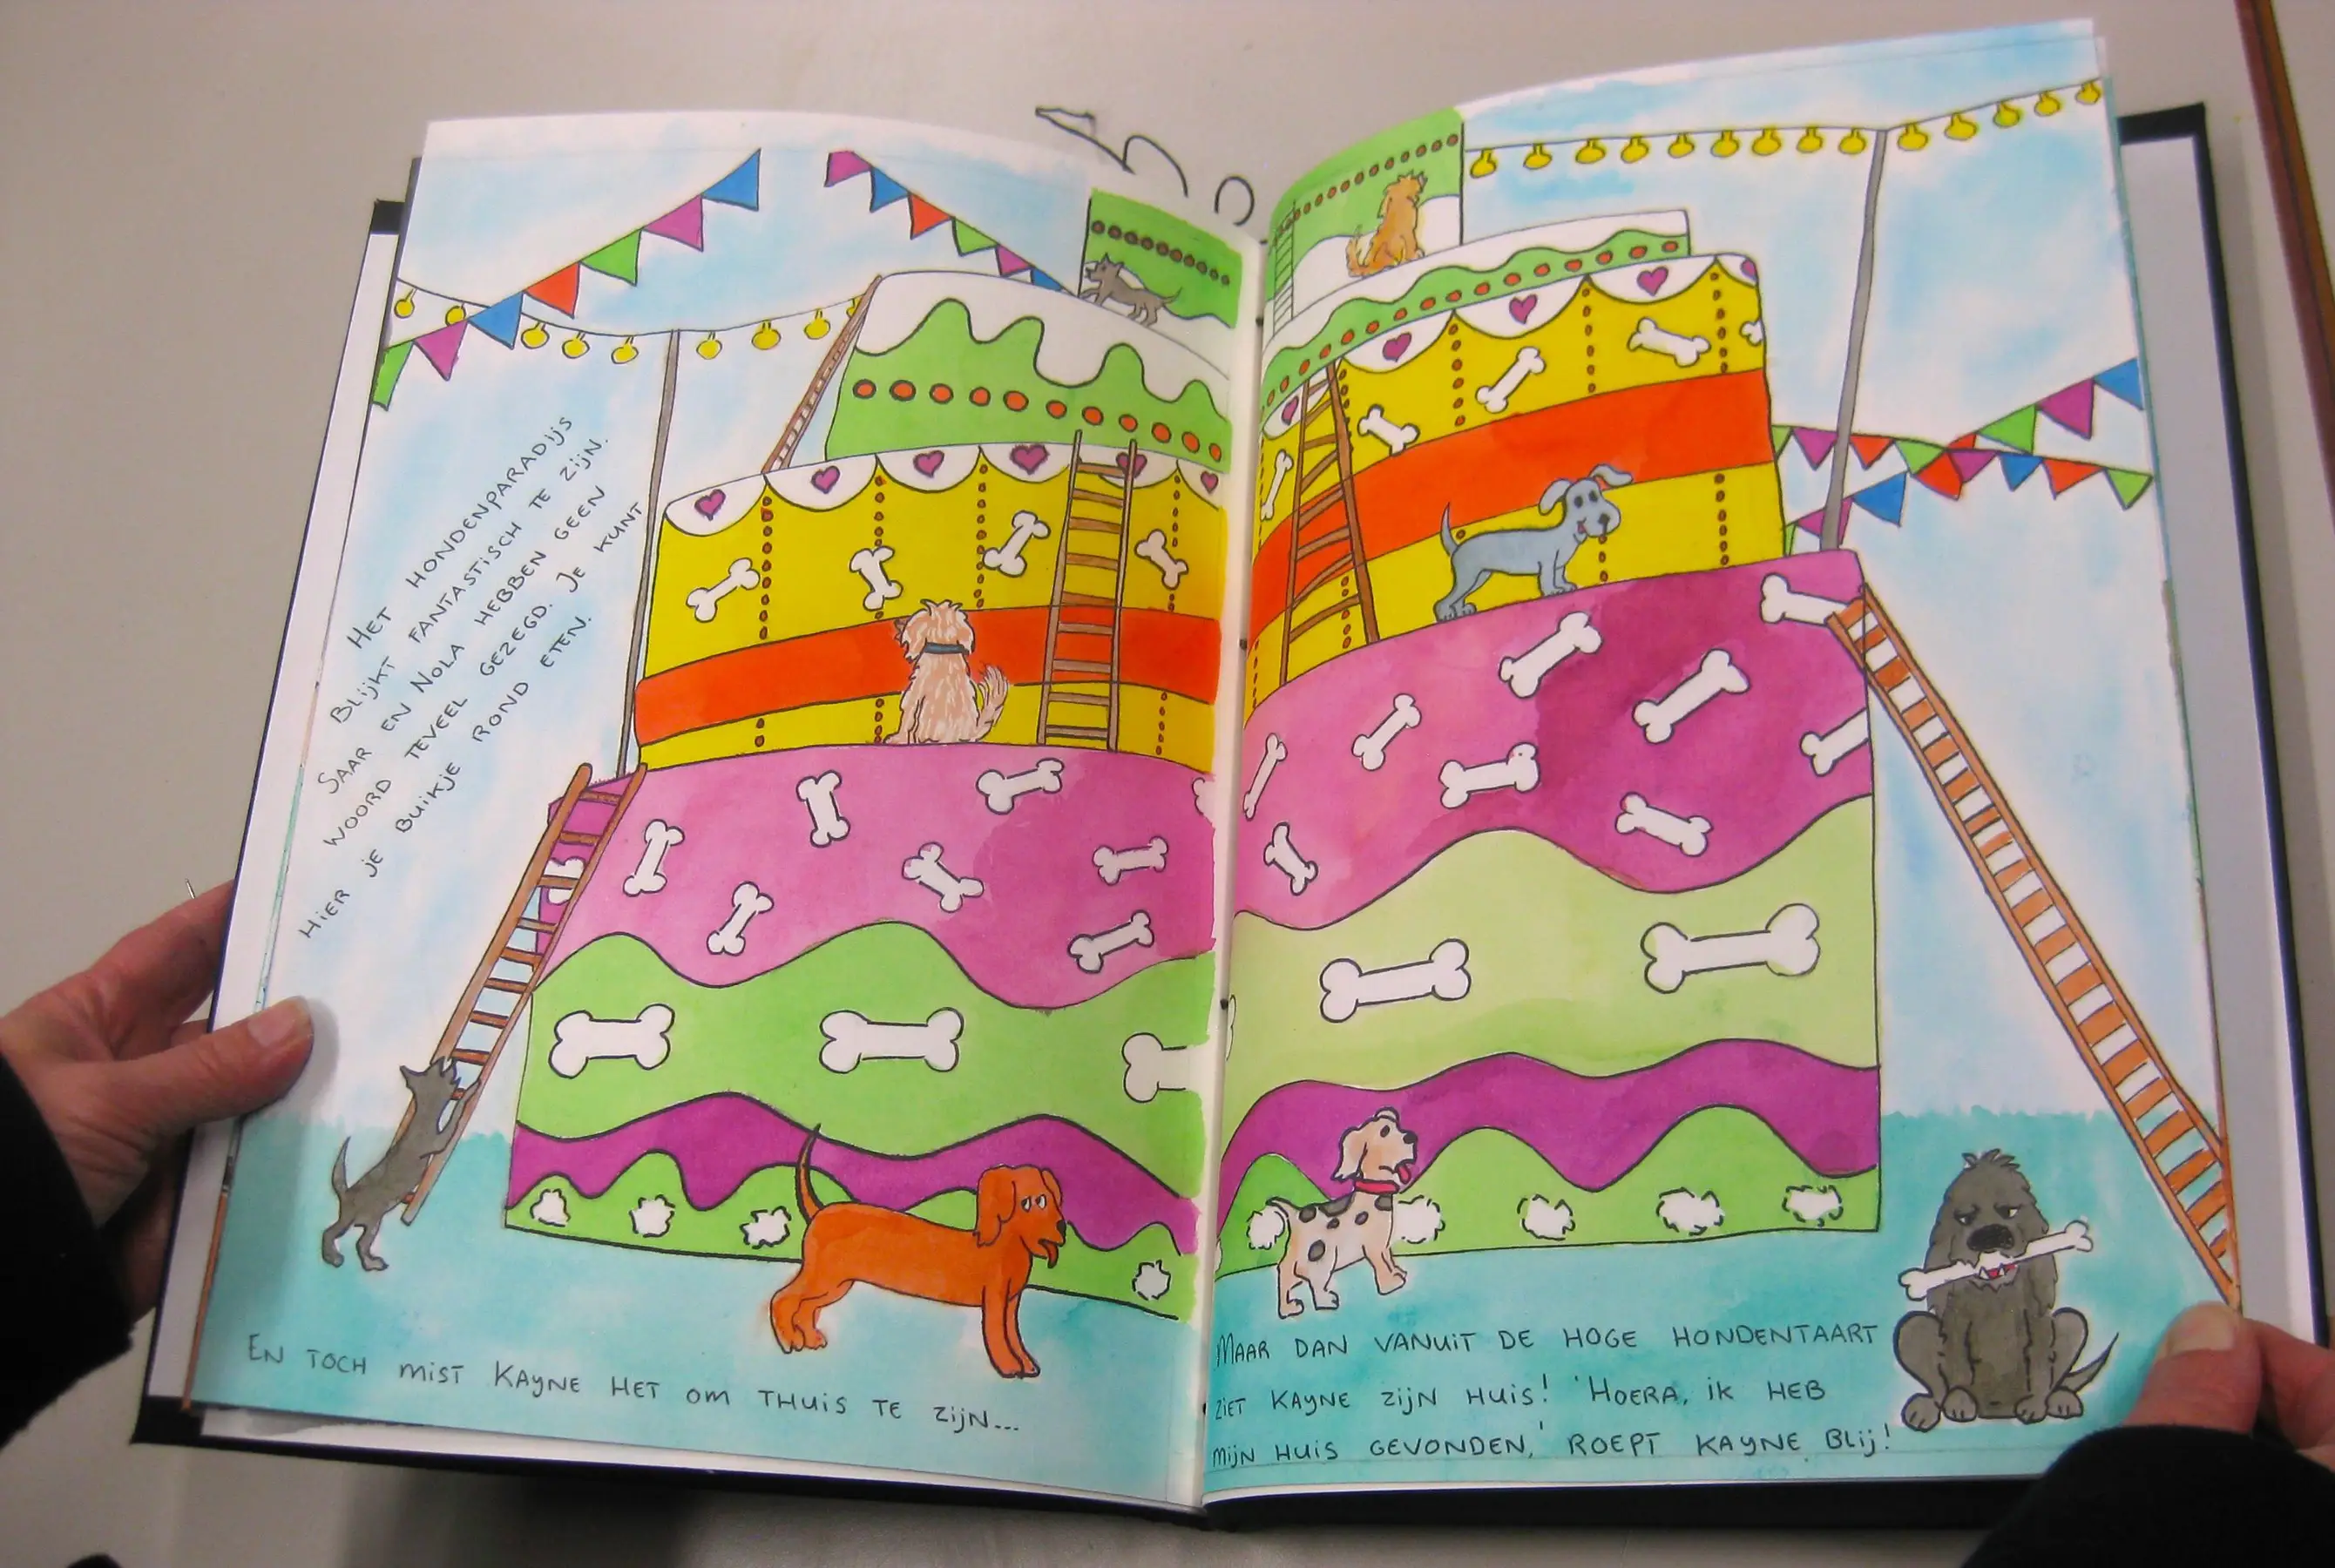 HET HONDENPARADijs
BLijKT FANTASTISCH TE Zijn.
SAAR EN NOLA HEBBEN GEEN
WOORD TEVEEL GEZEGD. JE KUNT
HIER JE BUIKJE ROND ETEN.
EN TOCH MIST KAYNE HET OM THUIS TE ZIJN...
MAAR DAN VANUIT DE HOGE HONDENTAART
ZIET KAYNE ZIJN HUIS! 'HOERA, IK HEB
MIJN HUIS GEVONDEN,' ROEPT KAYNE BLIJ!